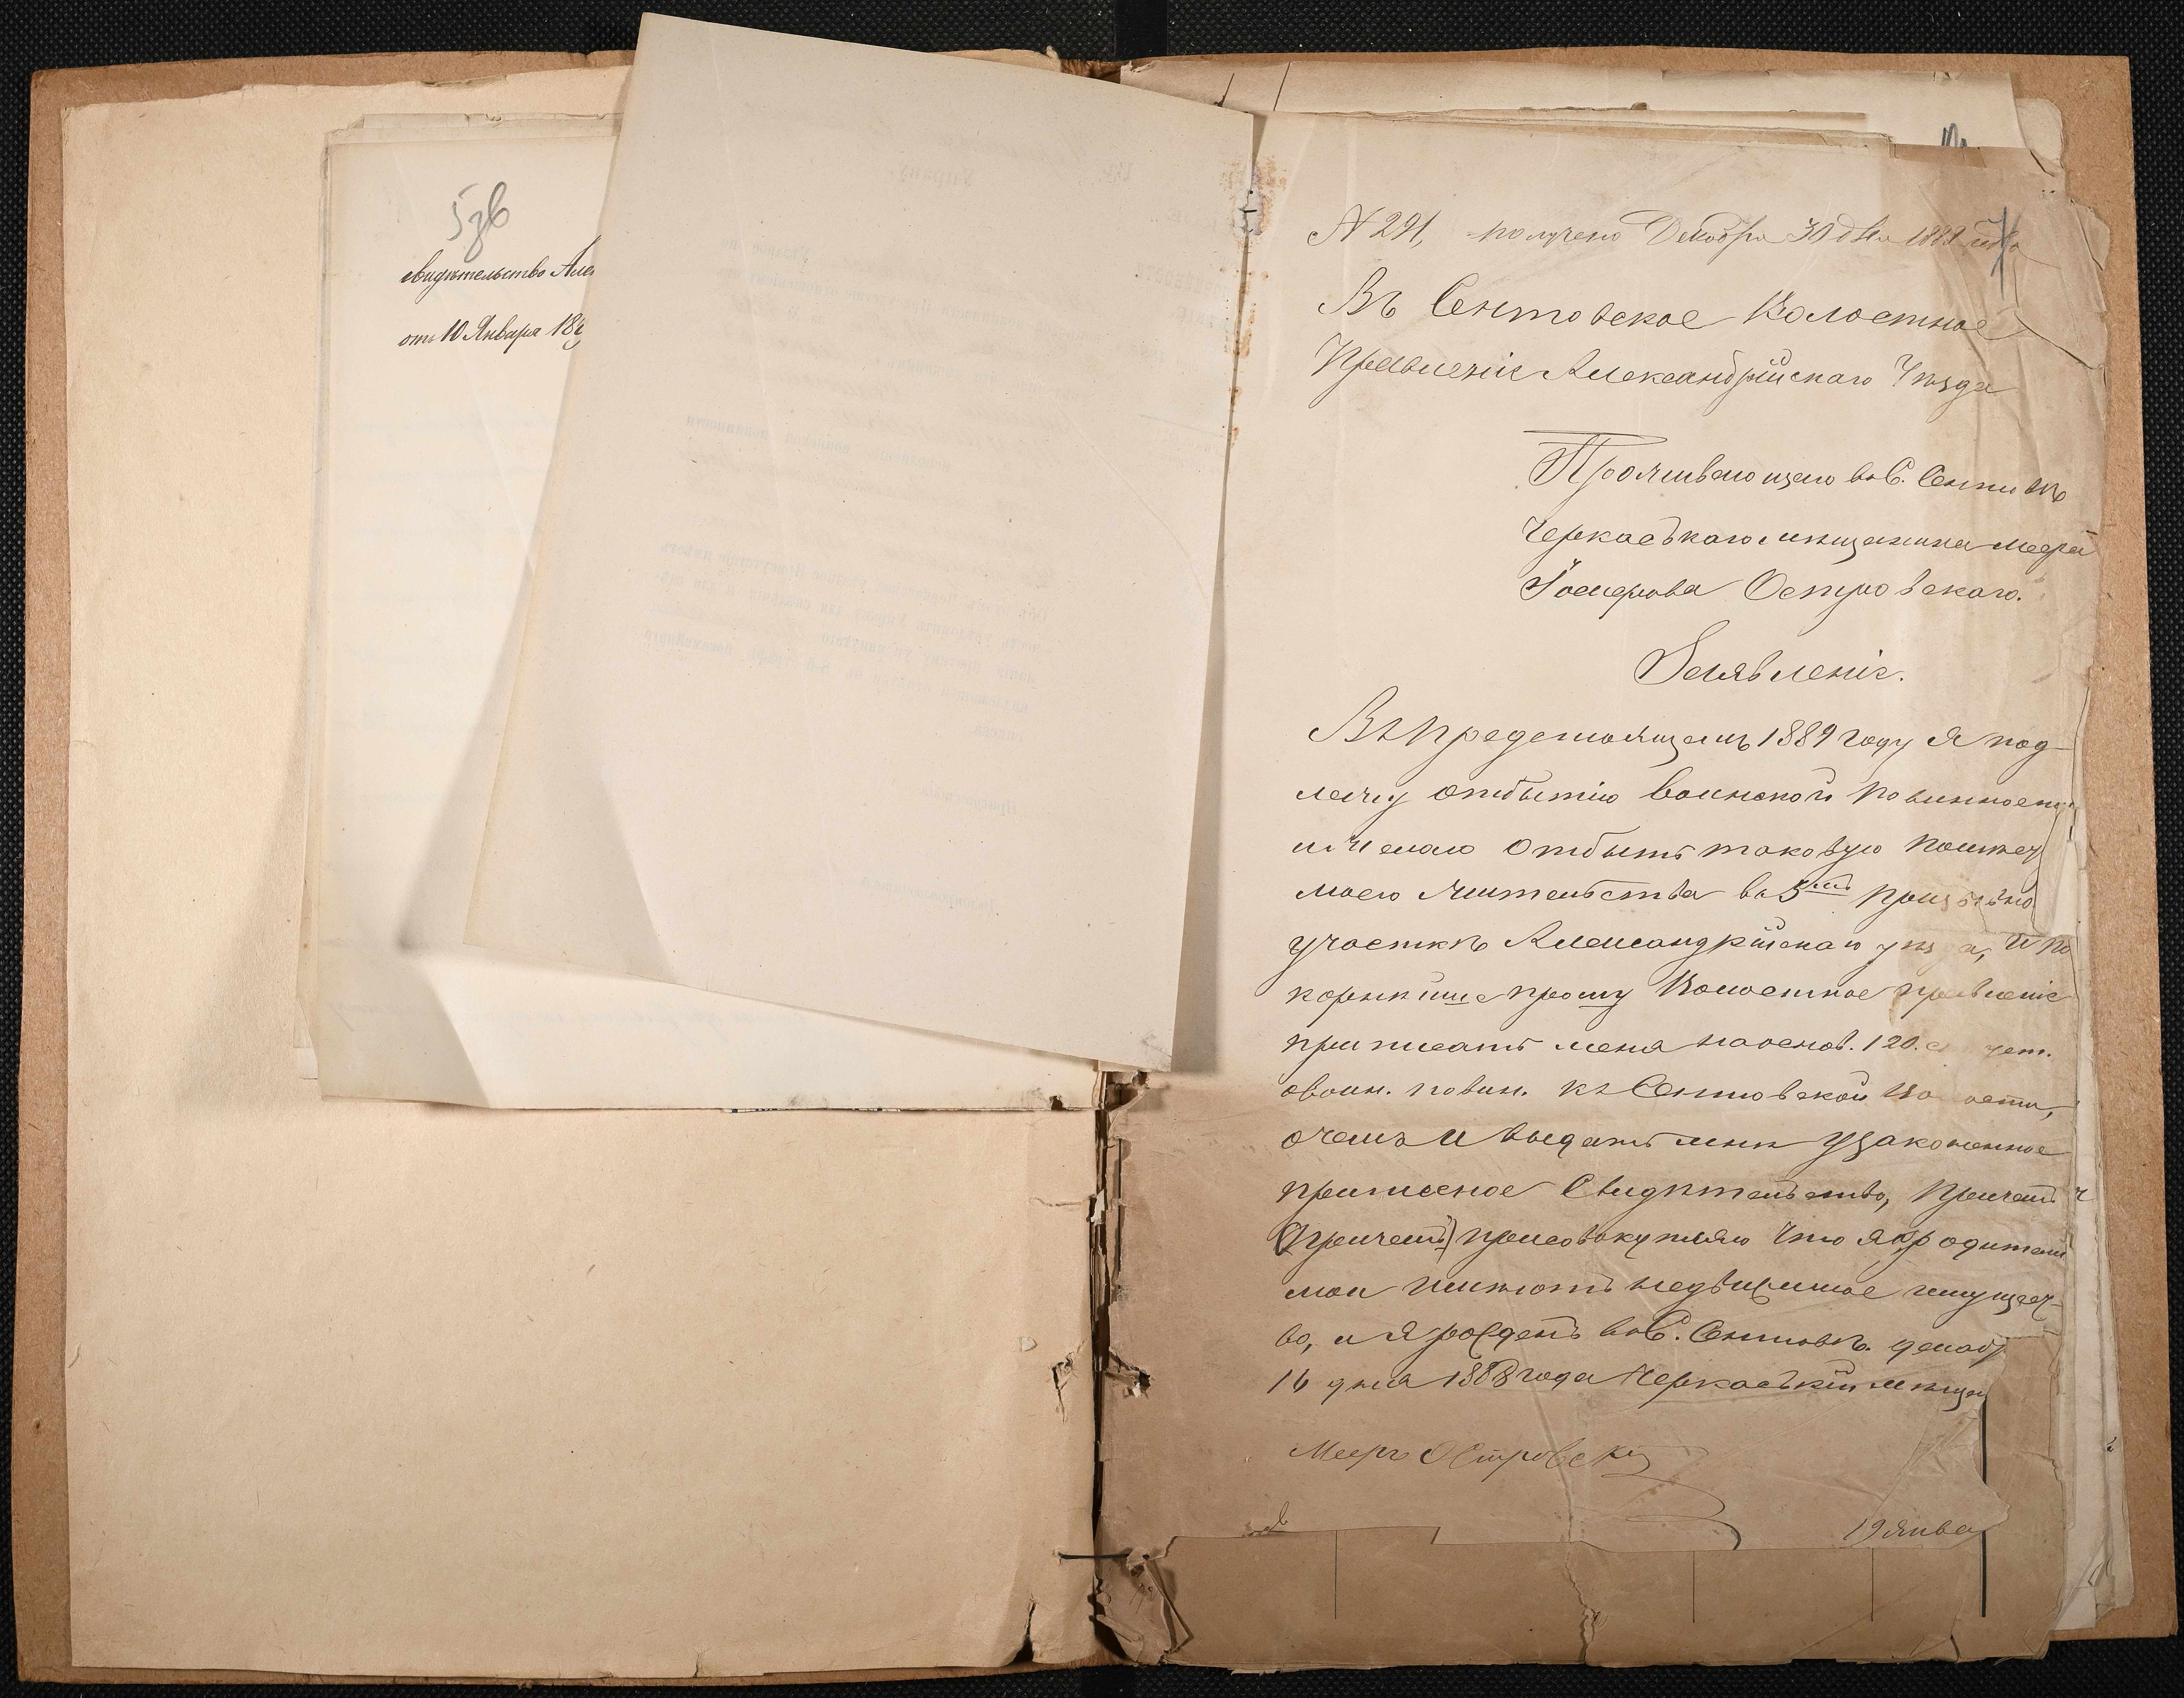 5 зв
свидѣтельство Але
отъ 10 Января 18
N 291, получено Декабря 30 дня 1889 года
Въ Сентовское Волостное
Правленіе Александрійскаго Уѣзда
Проживающаго въ С. Сентовѣ
Черкасскаго мѣщанина Меера
Островскаго.
Заявленіе.
Въ предстоящемъ 1889 году я под-
лежу отбытію воинской повинности
и желаю отбыть таковую по мѣсту
моего жительства въ 5мъ призывно
участкѣ Александрійскаго уѣз а, и по
корнѣйше прошу Волостное правленіе
приписать меня на основ. 120. с
о воин. повин. къ Сентовской Во ости,
о чемъ и выдать мнѣ узаконенное
приписное Свидѣтельство, причемъ
(причемъ) присовокупляю что я родители
мои имѣютъ недвижимое имущест-
во, и я рожденъ въ С. Сентовѣ. декаб
16 дня 1888 года Черкасскій мѣщан
Мееръ Островскій
19 Янва